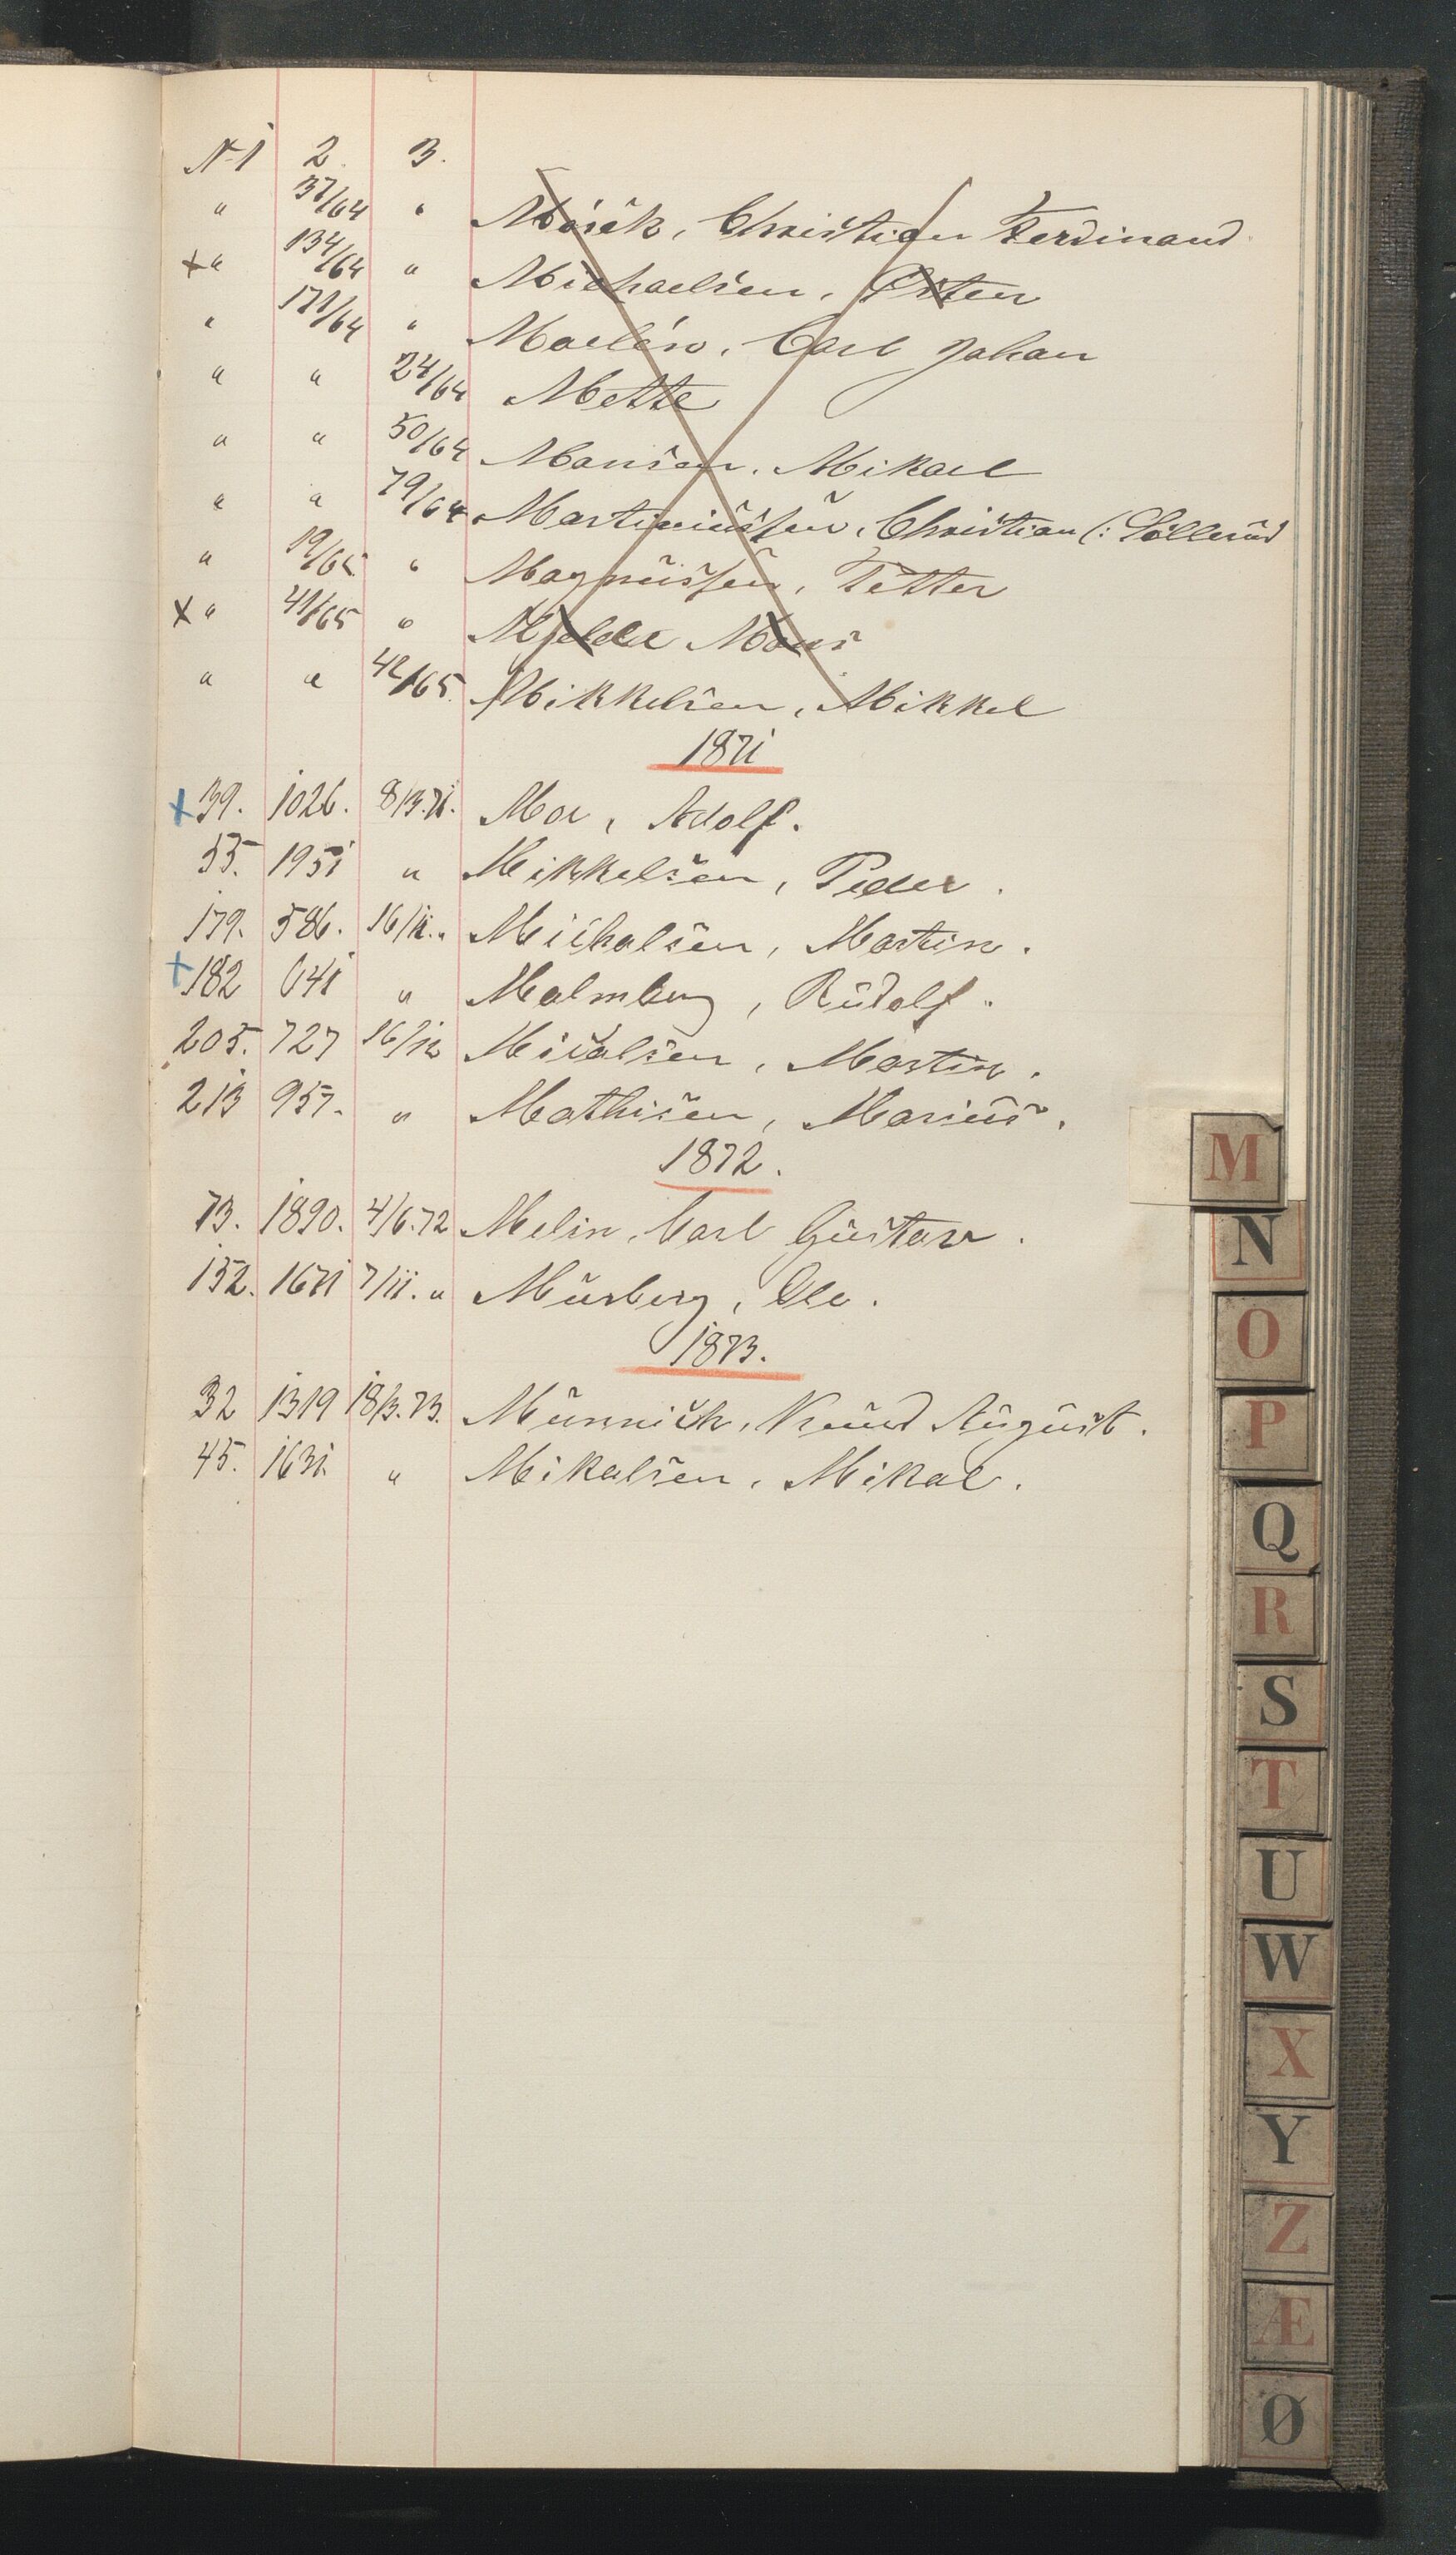 N 1 2. 3.
" 37/64 " Mörck, Christian Ferdinand
x " 134/64 " Michaelsen, Osten
" 171/64 " Maelén, Carl Johan
" " 24/64 Mette
" " 50/64 Mansen, Mikael
" " 79/64 Martiniussen, Christian (: Söllerud
" 19/65 " Magnussen, Petter
x " 41/65 " Mjelde Mons
" " 42/65. Mikkelsen, Mikkel
1871
x 39. 1026. 8/3.71. Moe, Adolf.
55. 1951 " Mikkelsen, Peder.
179. 586. 16/11. " Michalsen, Martin.
x 182 641 " Malmberg, Rudolf.
205. 727 16/12 Micalsen, Martin.
213 957. " Mathisen, Marius.
1872.
73. 1890. 4/6.72 Melin, Carl Gustav.
152. 1671 7/11. " Murberg, Ole.
1873.
32 1319 18/3.73. Münnich, Knud August.
45. 1631. " Mikalsen, Mikal.
M
N
O
P
Q
R
S
T
U
W
X
Y
Z
Æ
Ø